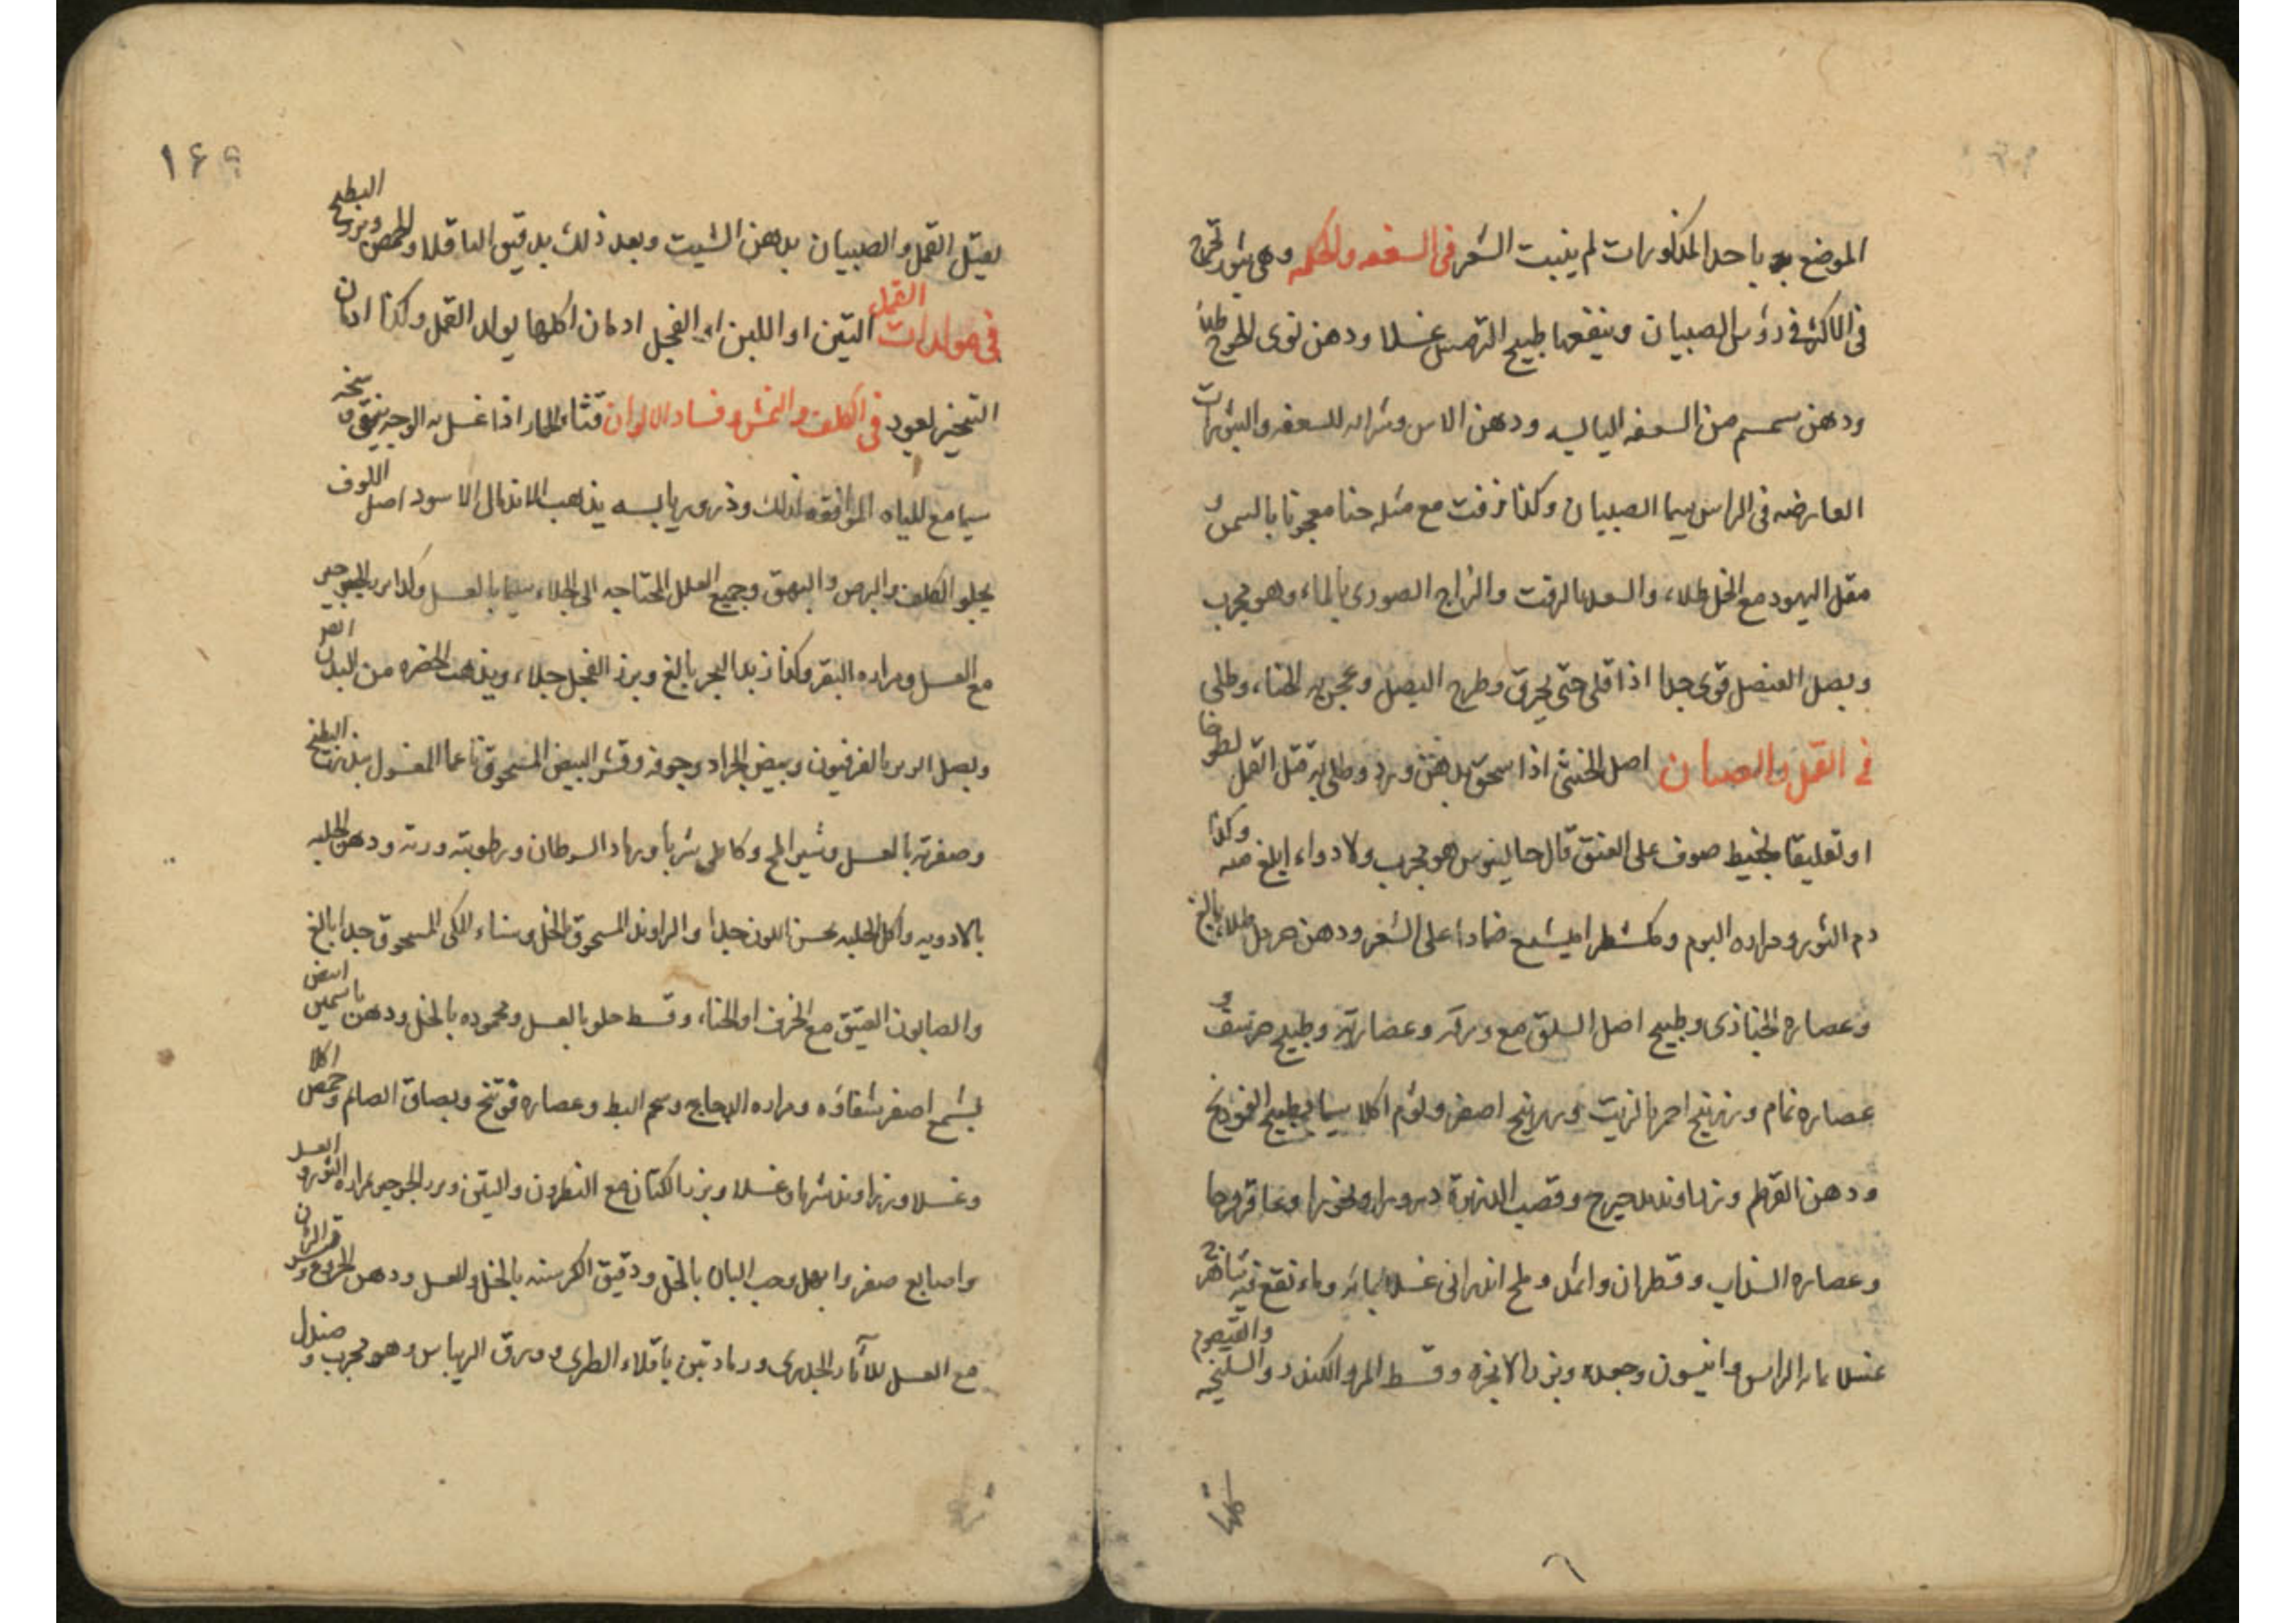 الموضع به باحد المذكورات لم ينبت الشعر في السعفه والحكه وهي بثور تخرج
في الاكثر في رؤس الصبيان وينفعها طبيخ الترمس غسلا ودهن نوى الخوخ طلاء
ودهن سمسم من السعفه اليابسه ودهن الاس وشرابه للسعفه والبثورات
العارضه في الراس سيما الصبيان وكذا زفت مع مثله حنا معجونا بالسمن و
مقل اليهود مع الخل طلاء والسعد بالزفت والزاج الصوري بالماء وهو مجرب
وبصل العنصل قوى جدا اذا قلى حتى يحرق وطرح البصل وعجن به الحناء وطلى
في القمل والصيبان اصل الخنثى اذا سحق بدهن ورد وطلى به قتل القمل لطوخا
او تعليقا بخيط صوف على العنق قال جالينوس هو مجرب ولا دواء ابلغ منه وكذا
دم الثور ومراره البوم وكمشطرامشيع ضمادا على الشعر ودهن خردل طلاء بالغ
وعصاره الخبازى وطبيخ اصل السلق مع ورقه وعصارته وطبيخ حرشف و
عصاره نمام وزرنيخ احمر بالزيت وزرنيخ اصفر وثوم اكلا سيما بطبيخ الفودنج
ودهن القرطم وزراوند مدحرج وقصب الذريرة ذرورا وبخورا وعاقرقرحا
وعصاره السذاب وقطران واثل وملح اندرانى غسلا بمائه وماء نقع فيه شاهترج
غسلا بماء الراس وانيسون وجعده وبزر الانجره وقسط المر والكندر والسليخه والقيصوم
كلها
١۶۶
يقتل القمل والصيبان بدهن الشبت وبعد ذلك بدقيق الباقلا والحمص وبزر البطيخ
في مولدات القمل التين او اللبن او الفجل ادمان اكلها يولد القمل وكذا ادمان
التبخير بعود في الكلف والنمش وفساد الالوان قثاء الحمار اذا غسل به الوجه نقى وسخه
سيما مع المياه الموافقه لذلك وذروره يابسه يذهب الاندمال الاسود اصل اللوف
يجلو الكلف والبرص والبهق وجميع العلل المحتاجه الى الجلاء سيما بالعسل وكذا بزر الجرجير
مع العسل ومراره البقر وكذا زبد البحر بالغ وبزر الفجل جلاء ويذهب الخضره من البدن
وبصل الزير بالفرفيون وبيض الجراد وجوفه وقشر البيض المسحوق ناعما المغسول ببزر البطيخ
وصفرته بالعسل وشير املج وكابلى شربا ورماد السرطان ورطوبته ودهن الحلبه
بالادويه واكل الحلبه يحسن اللون جدا والراوند المسحوق بالخل وسناء المكى المسحوق جدا بالغ
والصابون العتيق مع الخزف او الحناء وقسط حلو بالعسل ومحموده بالخل ودهن ياسمين ابيض
بشمع اصفر بشقاقه ومراره الدجاج وشحم البط وعصاره فوتنج وبصاق الصائم وحمص اكلا
وغسلا وزراوند شربا وغسلا وبزر الكتان مع النطرون والتين وبزر الجرجير بمراره الثور والعسل
واصابع صفر وابهل وحب البان بالخل ودقيق الكرسنه بالخل والعسل ودهن الخروع و
مع العسل للآثار الجدرى ورماد تبن باقلاء الطرى وورق الريباس وهو مجرب وصندل